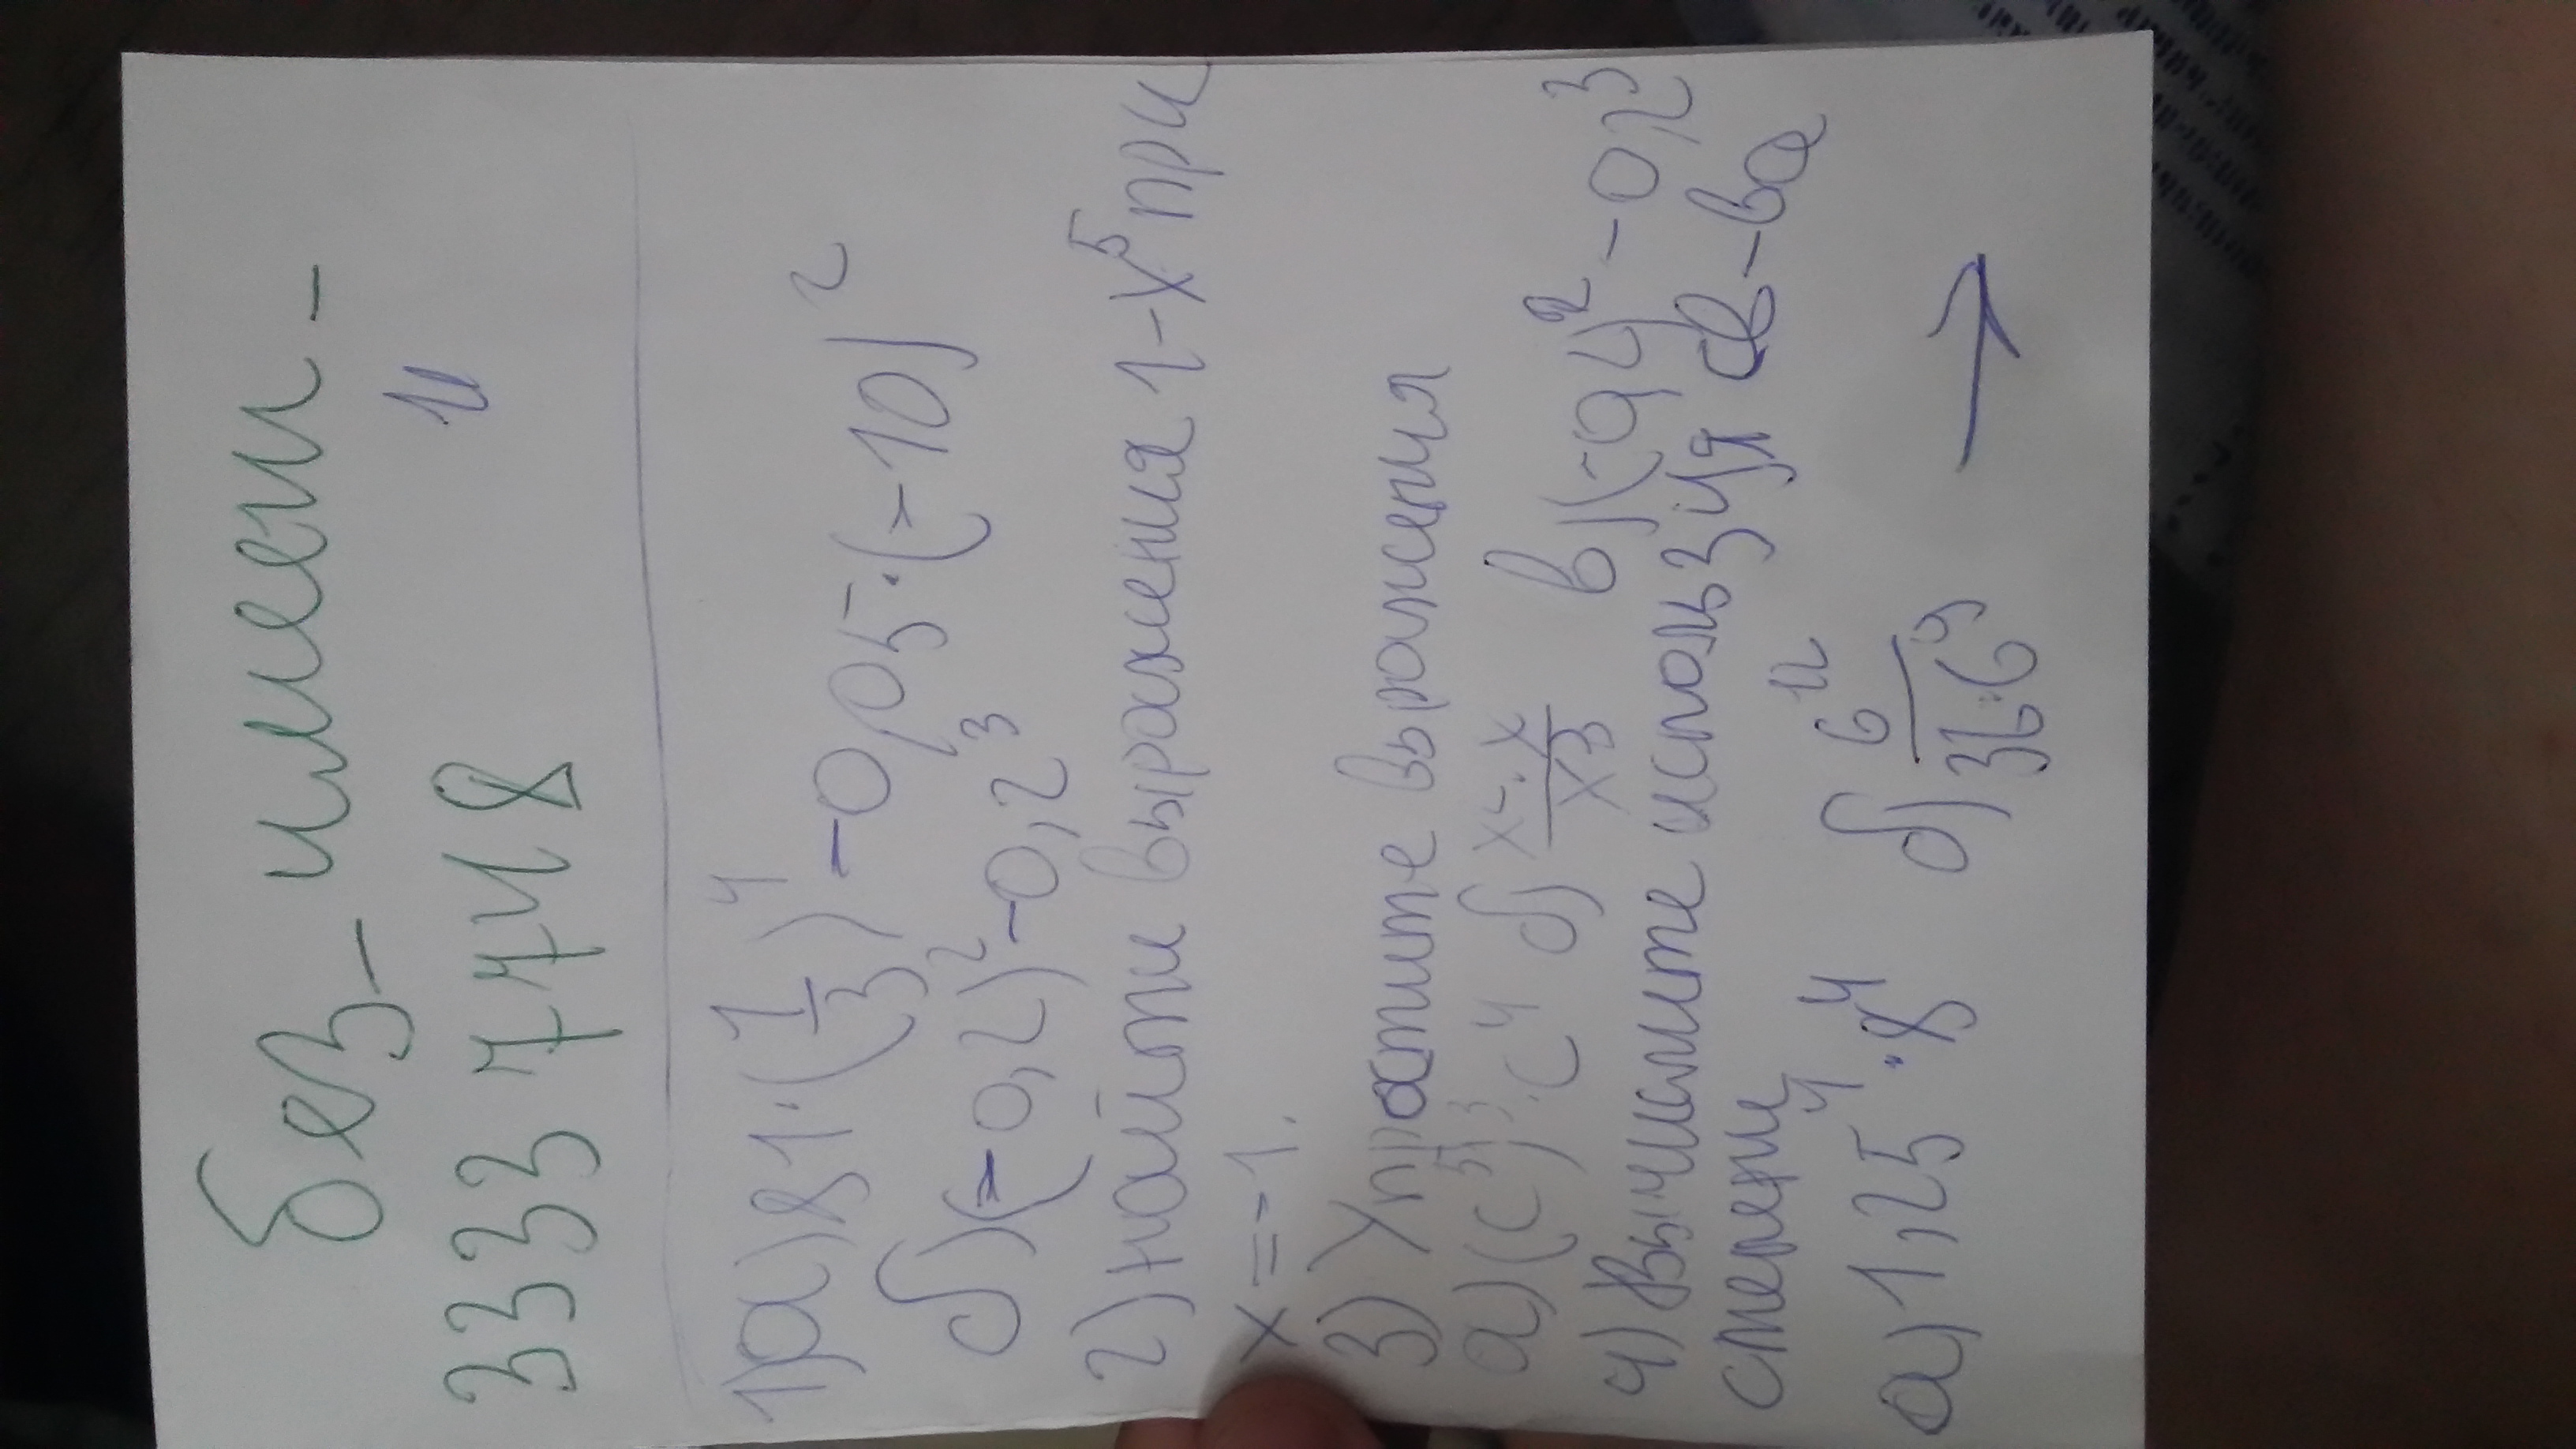 без- имени -
и
333 7748
1)а) 81·(1/3)⁴ -0,05·(-10)²
б)(-0,2)²-0,2³
2) найти выражения 1-x⁵ при
x=-1.
3) Упростите выражения
а)(c⁵)³·c⁴ б) x⁵·x/x³ в)(-0,2)²-0,2³
4) вычислите используя св-ва
степени
а) 1,25⁴·8⁴ б) 6¹²/36·6⁹
→